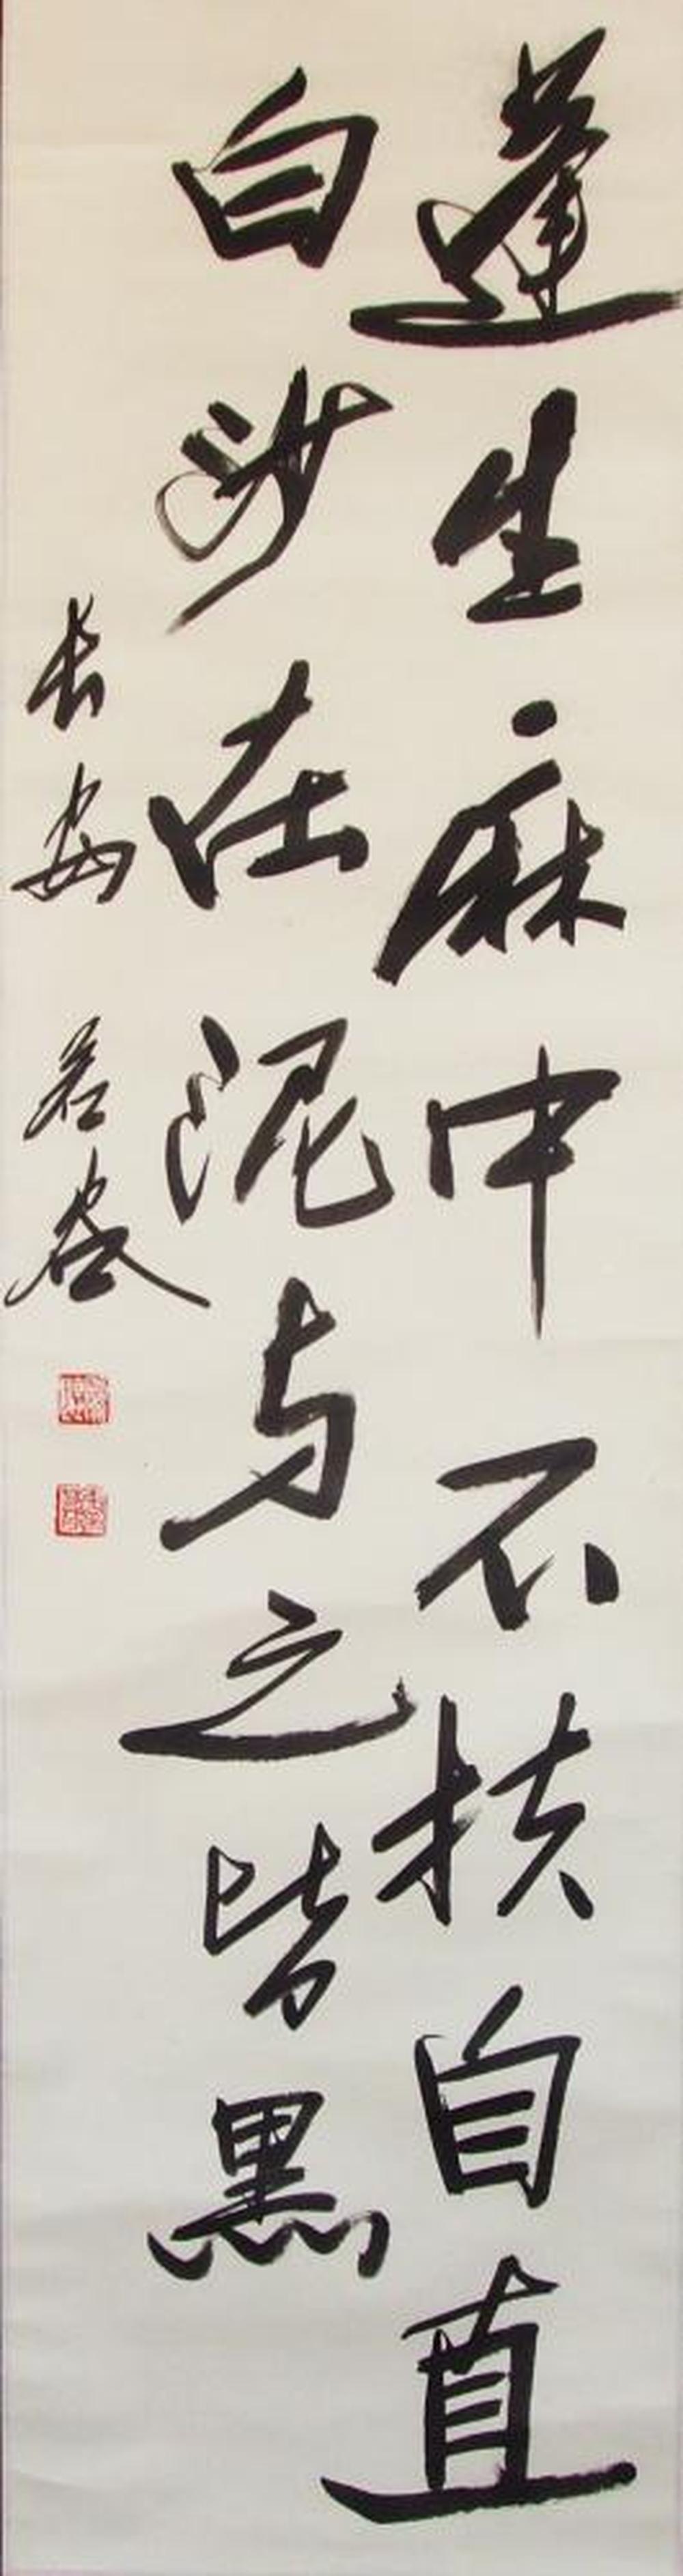 蓬生麻中不扶自直
白沙在泥与之皆黑
长安 若谷